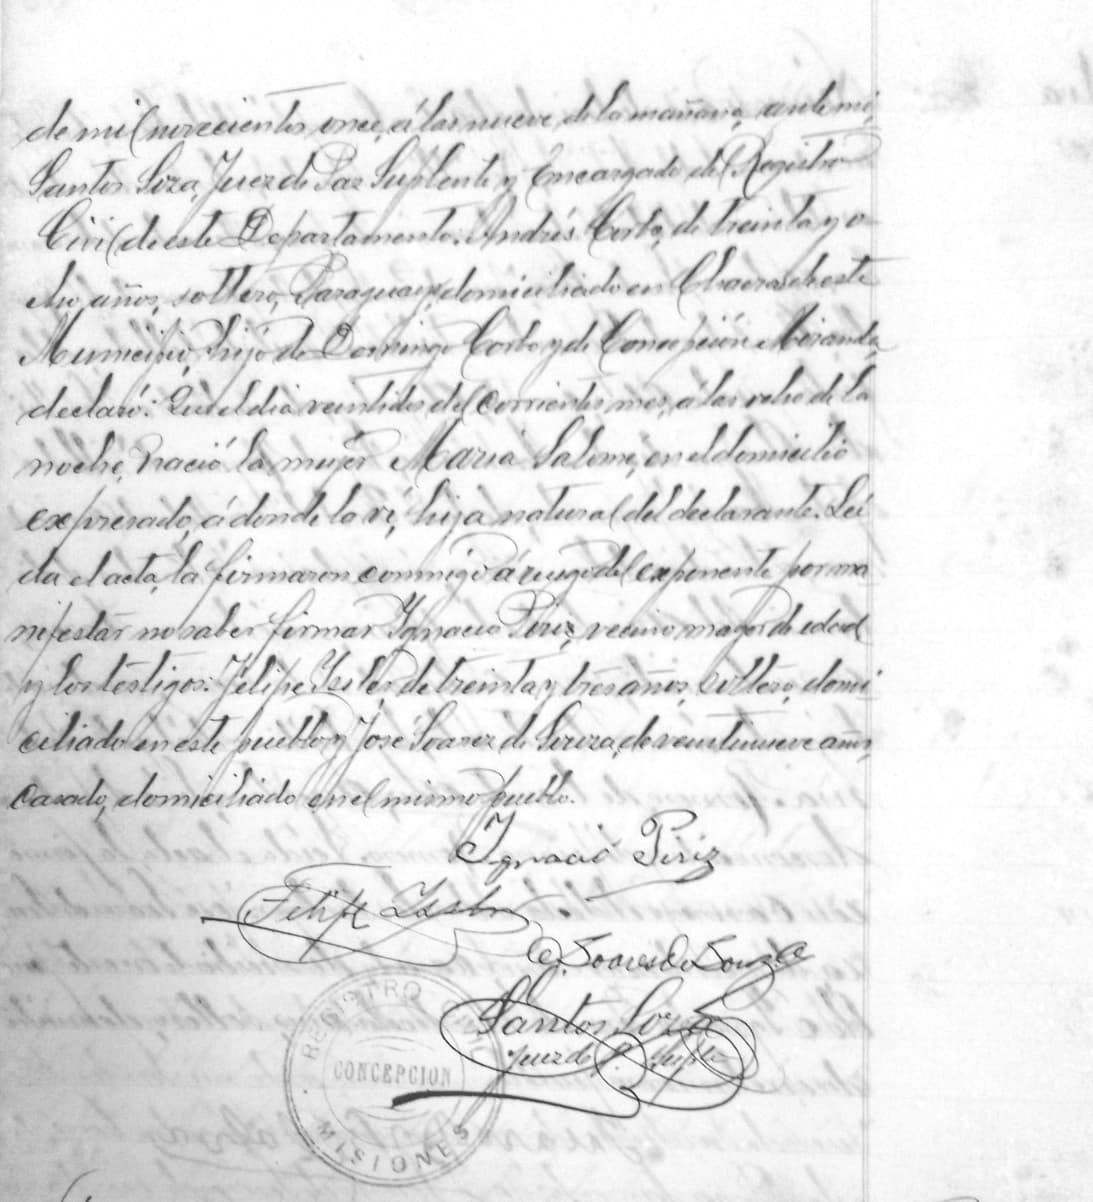 de mil novecientos once, á las nueve de la mañana, ante mí,
Santos Loza, Juez de Paz Suplente y Encargado del Registro
Civil de este Departamento: Andrés Corbo, de treinta y o-
cho años, soltero, Paraguayo, domiciliado en Chacras de este
Municipio, hijo de Domingo Corbo y de Concepción Miranda,
declaró: Que el dia veintidos del corriente mes, á las ocho de la
noche, nació la mujer Maria Salome, en el domicilio
expresado, á donde la ví, hija natural del declarante. Lei-
da el acta, la firmaron conmigo á ruego del exponente por ma-
nifestar no saber firmar Ignacio Piriz, vecino, mayor de edad
y los testigos: Felipe de treinta y tres años, soltero, domi-
ciliado en este pueblo y José Soarez de Souza, de veintinueve años,
casado, domiciliado en el mismo pueblo.
Ignacio Piriz
Felipe
J. Soares de Souza
Santos Loza
Juez de P. Suplte
REGISTRO CIVIL
CONCEPCION
MISIONES